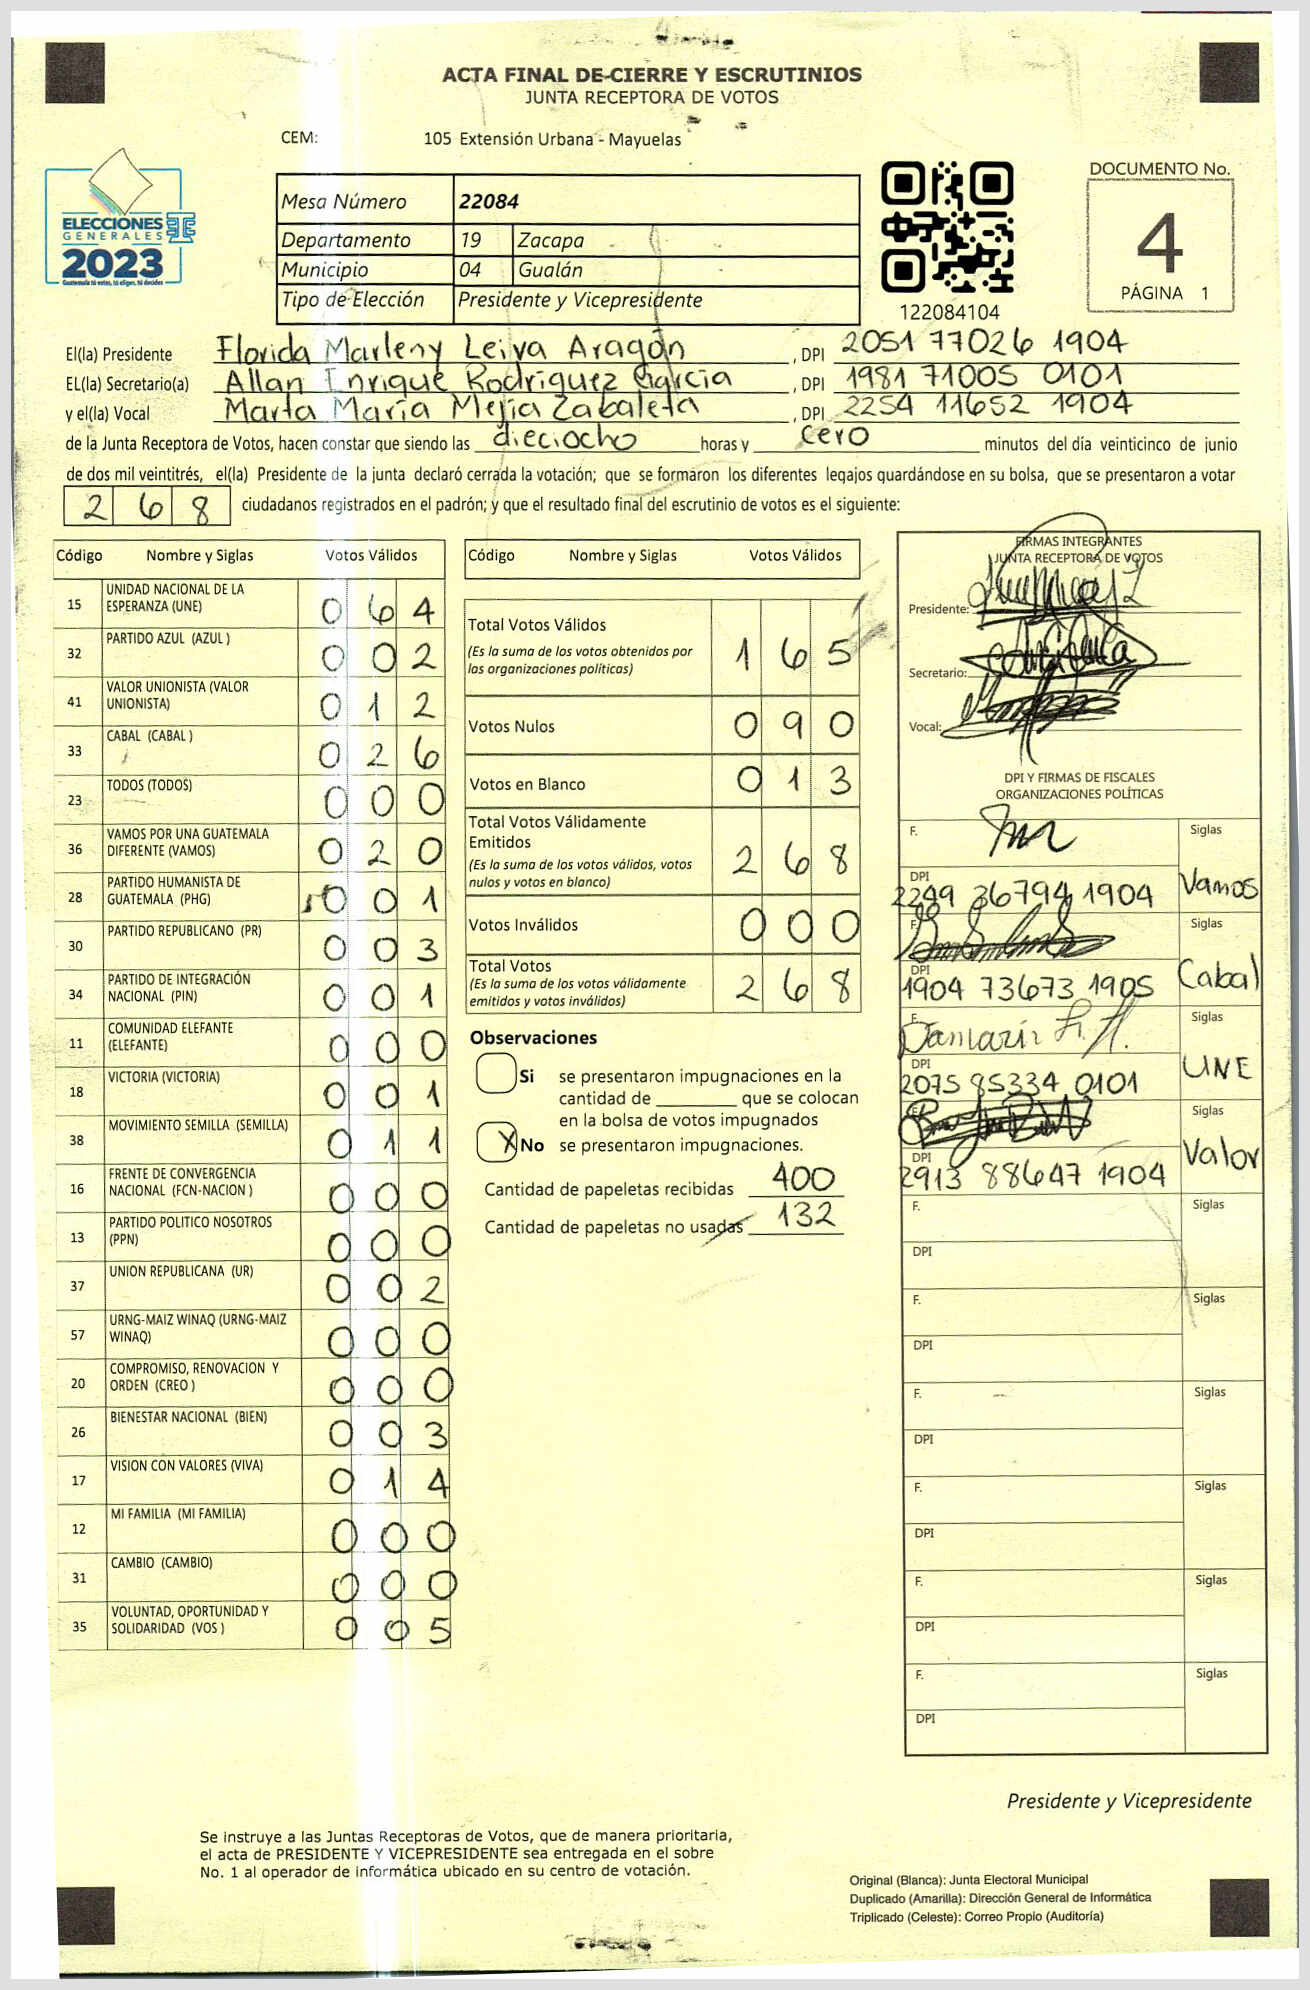 ACTA FINAL DE CIERRE Y ESCRUTINIOS
JUNTA RECEPTORA DE VOTOS
CEM: 105 Extensión Urbana - Mayuelas
ELECCIONES
GENERALES
2023
Guatemala tú votas, tú eliges, tú decides
Mesa Número 22084
Departamento 19 Zacapa
Municipio 04 Gualán
Tipo de Elección Presidente y Vicepresidente
122084104
DOCUMENTO No.
4
PÁGINA 1
El(la) Presidente Florida Marleny Leiva Aragón, DPI 2051 77026 1904
EL(la) Secretario(a) Allan Enrique Rodríguez García, DPI 1981 71005 0101
y el(la) Vocal Marta María Mejía Zabaleta, DPI 2254 11652 1904
de la Junta Receptora de Votos, hacen constar que siendo las dieciocho horas y cero minutos del día veinticinco de junio
de dos mil veintitrés, el(la) Presidente de la junta declaró cerrada la votación; que se formaron los diferentes legajos guardándose en su bolsa, que se presentaron a votar
268 ciudadanos registrados en el padrón; y que el resultado final del escrutinio de votos es el siguiente:
Código Nombre y Siglas Votos Válidos
15 UNIDAD NACIONAL DE LA ESPERANZA (UNE) 0 6 4
32 PARTIDO AZUL (AZUL ) 0 0 2
41 VALOR UNIONISTA (VALOR UNIONISTA) 0 1 2
33 CABAL (CABAL ) 0 2 6
23 TODOS (TODOS) 0 0 0
36 VAMOS POR UNA GUATEMALA DIFERENTE (VAMOS) 0 2 0
28 PARTIDO HUMANISTA DE GUATEMALA (PHG) 0 0 1
30 PARTIDO REPUBLICANO (PR) 0 0 3
34 PARTIDO DE INTEGRACIÓN NACIONAL (PIN) 0 0 1
11 COMUNIDAD ELEFANTE (ELEFANTE) 0 0 0
18 VICTORIA (VICTORIA) 0 0 1
38 MOVIMIENTO SEMILLA (SEMILLA) 0 1 1
16 FRENTE DE CONVERGENCIA NACIONAL (FCN-NACION ) 0 0 0
13 PARTIDO POLITICO NOSOTROS (PPN) 0 0 0
37 UNION REPUBLICANA (UR) 0 0 2
57 URNG-MAIZ WINAQ (URNG-MAIZ WINAQ) 0 0 0
20 COMPROMISO, RENOVACION Y ORDEN (CREO ) 0 0 0
26 BIENESTAR NACIONAL (BIEN) 0 0 3
17 VISION CON VALORES (VIVA) 0 1 4
12 MI FAMILIA (MI FAMILIA) 0 0 0
31 CAMBIO (CAMBIO) 0 0 0
35 VOLUNTAD, OPORTUNIDAD Y SOLIDARIDAD (VOS ) 0 0 5
Código Nombre y Siglas Votos Válidos
Total Votos Válidos 1 6 5
(Es la suma de los votos obtenidos por
las organizaciones políticas)
Votos Nulos 0 9 0
Votos en Blanco 0 1 3
Total Votos Válidamente
Emitidos 2 6 8
(Es la suma de los votos válidos, votos
nulos y votos en blanco)
Votos Inválidos 0 0 0
Total Votos 2 6 8
(Es la suma de los votos válidamente
emitidos y votos inválidos)
Observaciones
Si se presentaron impugnaciones en la
cantidad de ________ que se colocan
en la bolsa de votos impugnados
X No se presentaron impugnaciones.
Cantidad de papeletas recibidas 400
Cantidad de papeletas no usadas 132
FIRMAS INTEGRANTES
JUNTA RECEPTORA DE VOTOS
Presidente:
Secretario:
Vocal:
DPI Y FIRMAS DE FISCALES
ORGANIZACIONES POLÍTICAS
F. Siglas
DPI 2249 36794 1904 Vamos
F. Siglas
DPI 1904 73673 1905 Cabal
F. Siglas
DPI 2075 85334 0101 UNE
F. Siglas
DPI 2913 88647 1904 Valor
F. Siglas
DPI
F. Siglas
DPI
F. Siglas
DPI
F. Siglas
DPI
F. Siglas
DPI
F. Siglas
DPI
Presidente y Vicepresidente
Se instruye a las Juntas Receptoras de Votos, que de manera prioritaria,
el acta de PRESIDENTE Y VICEPRESIDENTE sea entregada en el sobre
No. 1 al operador de informática ubicado en su centro de votación.
Original (Blanca): Junta Electoral Municipal
Duplicado (Amarilla): Dirección General de Informática
Triplicado (Celeste): Correo Propio (Auditoría)